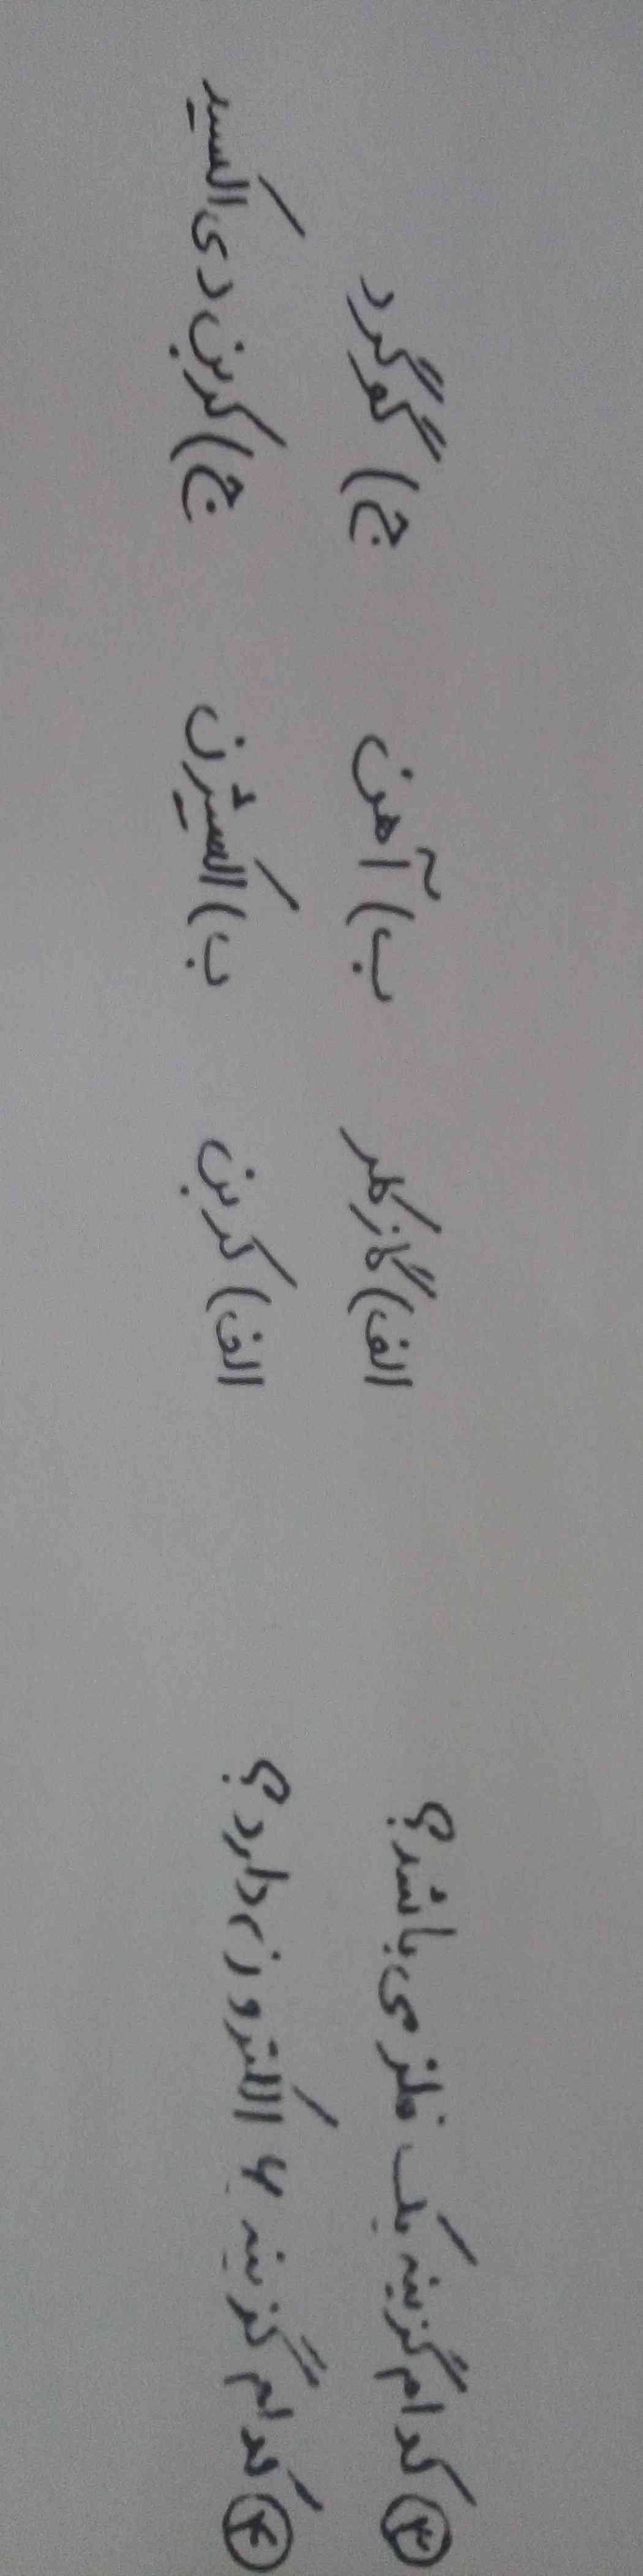 ۳ کدام گزینه یک فلز می باشد؟ الف) گاز کلر ب) آهن ج) گوگرد
۴ کدام گزینه ۶ الکترون دارد؟ الف) کربن ب) اکسیژن ج) کربن دی اکسید